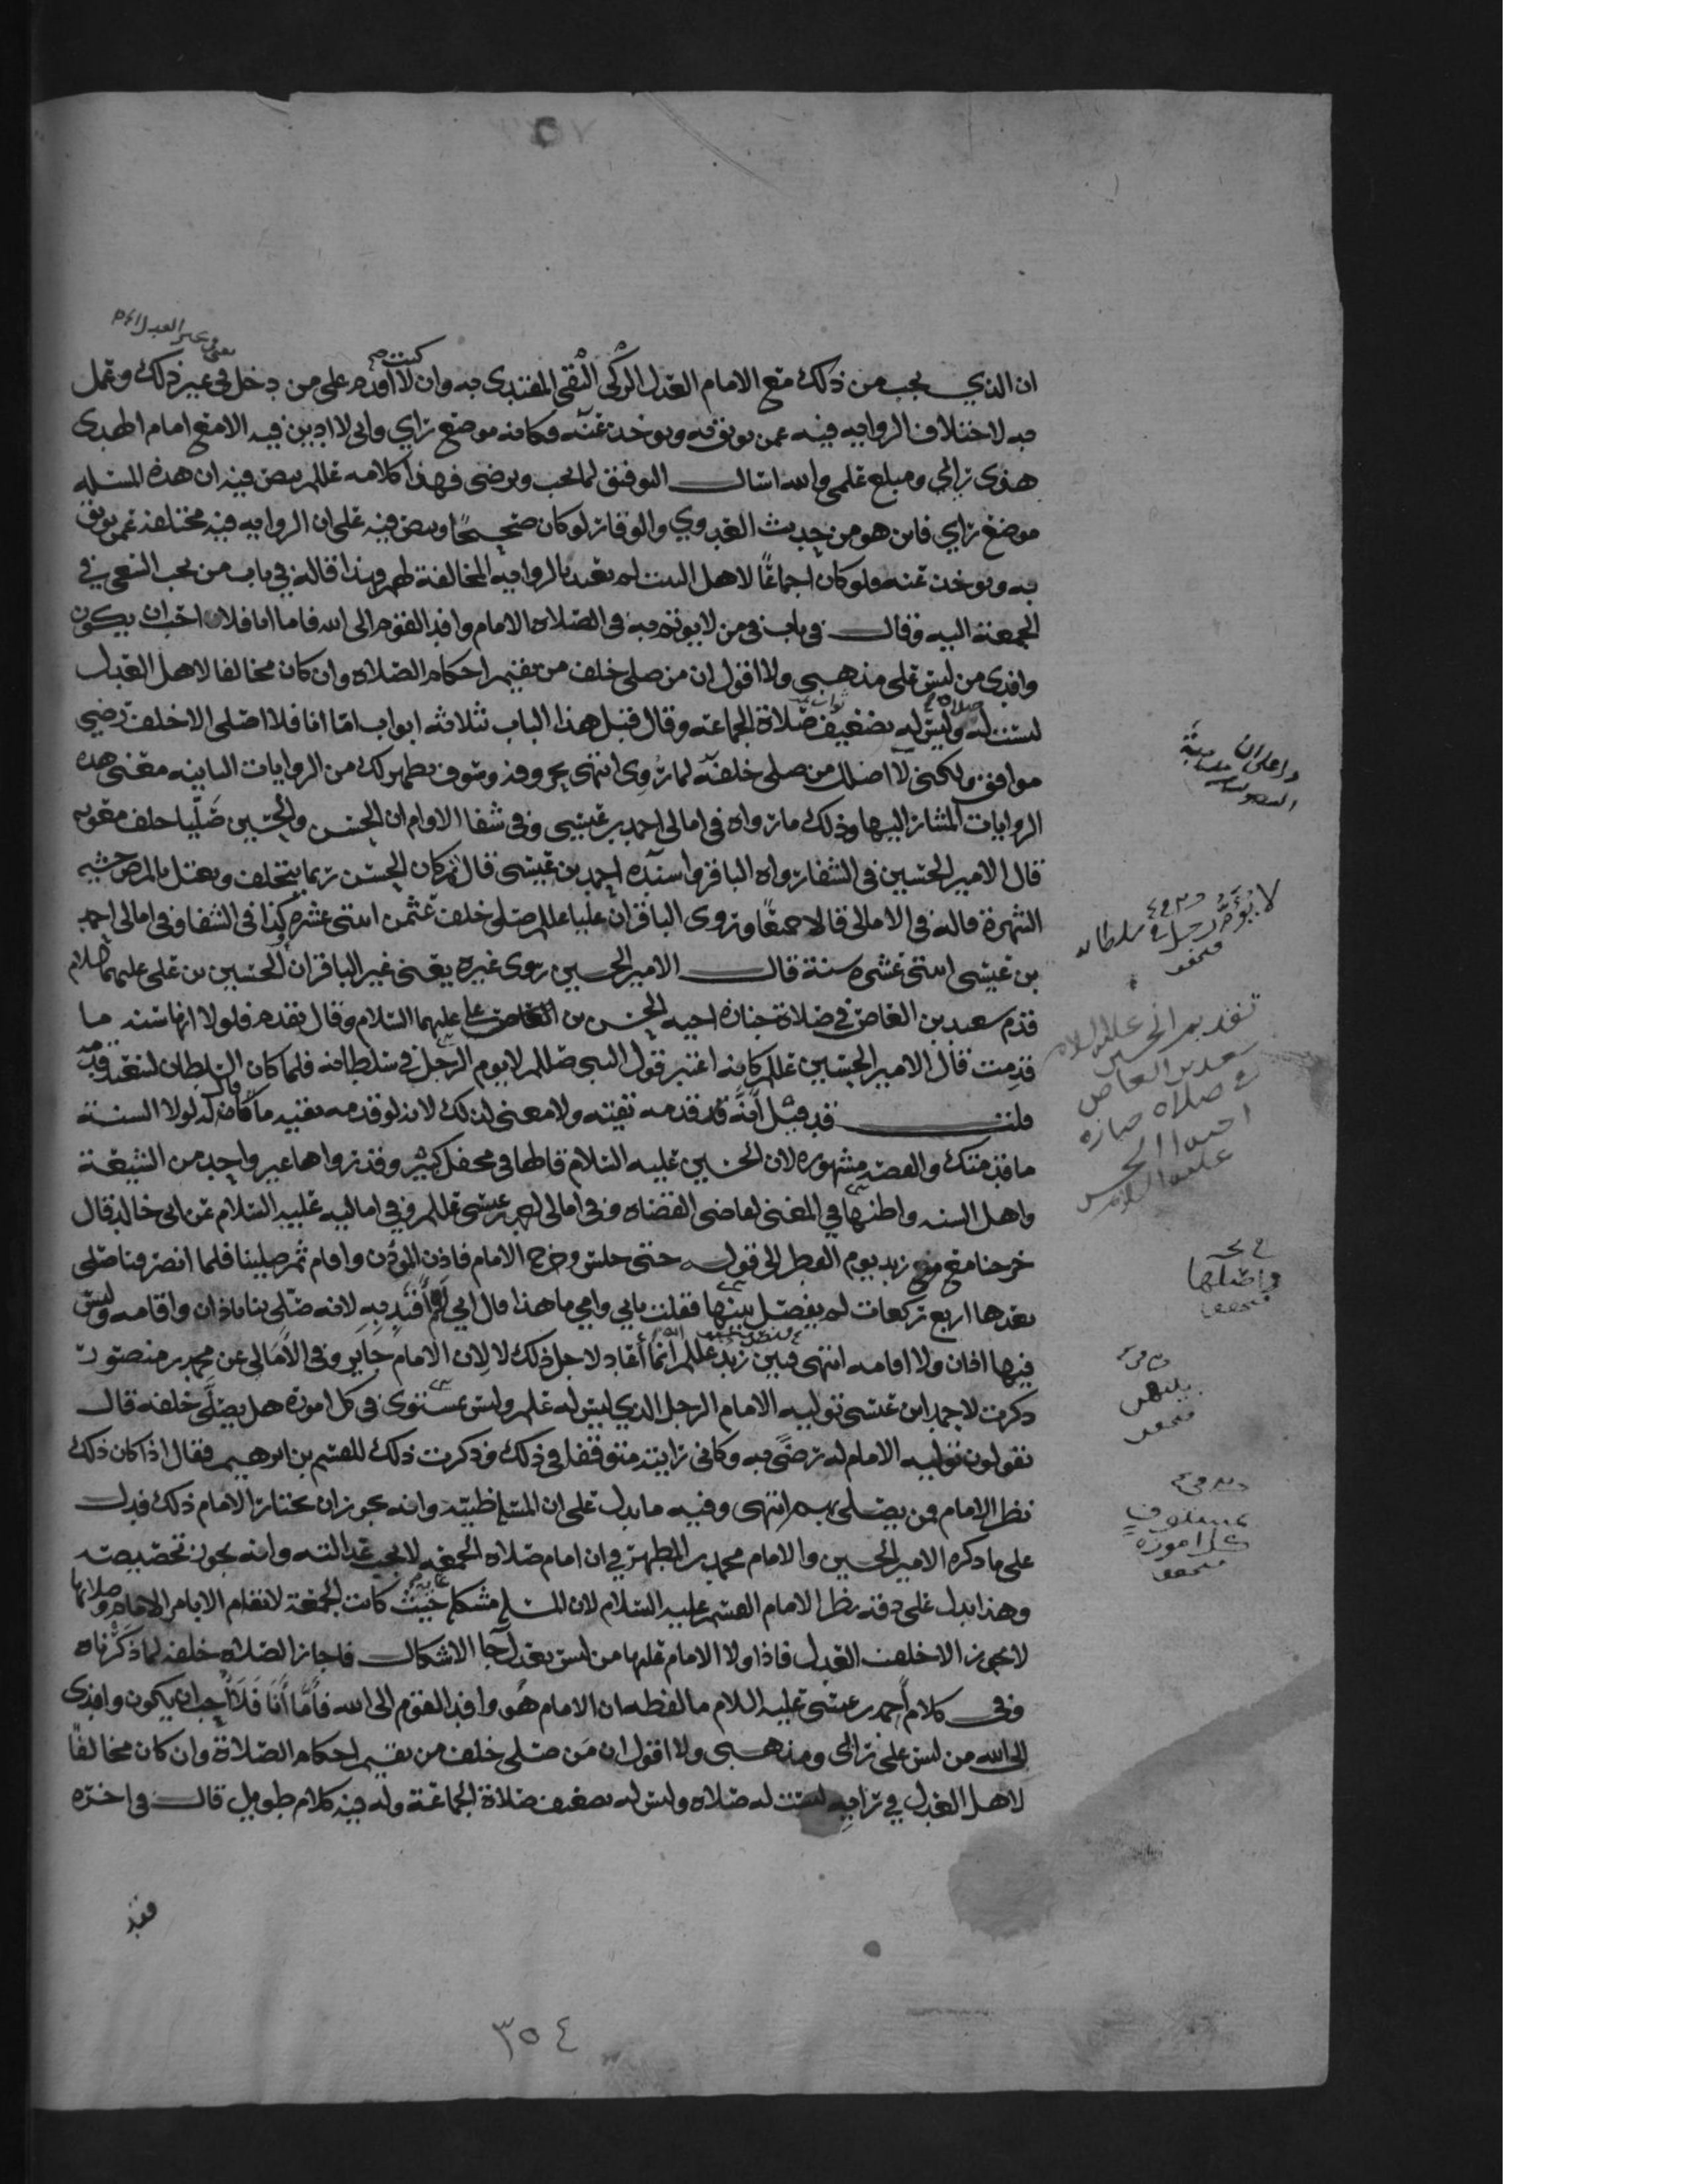 ان الذي يجب من ذلك مع الامام العدل الزكي التقي المقتدى به وان كنت لا اقدم على من دخل في غير ذلك وعمل
به لاختلاف الروايه فيه عمن يوثق به ويوخذ عنه وكانه موضع راي واني لا ادين فيه الا مع امام الهدى
هذى رائي ومبلغ علمي والله اسال التوفيق لما يحب ويرضى فهذا كلامه علللم ينص فيه ان هذه المسئله
موضع راي فاين هو من حديث الغدوي والوقار لو كان صحيحًا وينص فيه على ان الروايه فيه مختلفه عمن يوثق
به ويوخذ عنه ولو كان اجماعًا لاهل البيت لم يعتد بالروايه المخالفة لهم وبذا قاله في باب من يجب السعي في
الجمعة اليه وقال في باب في من لا يوتم به في الصلاه الامام وافد القوم الى الله فاما انا فلا احب ان يكون
وافدى من ليس على مذهبي ولا اقول ان من صلى خلف من يقيم احكام الصلاه وان كان مخالفا لاهل العدل
ليست له صلاه وليس له تضعيف صلاة الجماعه وقال قبل هذا الباب بثلاثه ابواب امّا انا فلا اصلى الا خلف رضي
موافق ولكني لا اضلل من صلى خلفه لما رُوِى انتهى بحروفه وسوف يظهر لك من الروايات معنى هذه
الروايات المشار اليها وذلك ما رواه في امالي احمد بن عيسى وفي شفا الاوام ان الحسن والحسين صَلّيا خلف معويه
قال الامير الحسين في الشفا رواه الباقر واسنده احمد بن عيسى قال ثم كان الحسن ربما يتخلف ويعتل بالمرض خشيه
الشهرة قاله في الامالي قالا جميعًا وروى الباقر ان عليا علللم صلى خلف عثمن اثنتي عشره كذا في الشفا وفي امالي احمد
بن عيسى اثنتي عشره سنة قال الامير الحسين روى غيره يعني غير الباقر ان الحسين بن علي عليهما السلام
قدم سعيد بن العاص في صلاة جنازه اخيه الحسن بن علي عليهما السلام وقال تقدم فلولا انها سنه ما
قدمت قال الامير الحسين علللم كانه اعتبر قول النبي صللم لا يوم الرجل في سلطانه فلما كان السلطان لسعيد قدمه
قلت قد قيل انه قد قدمه تقيته ولا معنى لذلك لانه لو قدمه تقيه ما قال له لولا السنة
ما قدمتك والقصه مشهوره لان الحسين عليه السلام قالها في محفل كثير وقد رواها غير واحد من الشيعة
واهل السنه واظنها في المغني لقاضي القضاه وفي امالي احمد بن عيسى علللم وفي اماليه عليه السلام عن ابي خالد قال
خرجنا مع زيد يوم الفطر الى قوله حتى جلس وخرج الامام فاذن الموذن واقام ثم صلينا فلما انصرفنا صلى
بعدها اربع ركعات لم يفصل بينها فقلت بابي وامي ما هذا قال اني لم أَقتدِ بِه لانه صلى بنا باذان واقامه وليس
فيها اذان ولا اقامه انتهى فبين زيد علللم انما أعاد لاجل ذلك لا لان الامام جَاير وفي الأمالي عن محمد بن منصور
ذكرت لاحمد ابن عيسى توليه الامام الرجل الذي ليس له علم وليس بمستوى في كل اموره هل يصلّى خلفه قال
تقولون توليه الامام له رضىً به وكاني رايته متوقفا في ذلك وذكرت ذلك للقسم بن ابرهيم فقال اذا كان ذلك
نظر الامام فمن يصلي بهم انتهى وفيه ما يدل على ان المسئله ظنيّه وانه يجوز ان يختار الامام ذلك فدل
على ما ذكره الامير الحسين والامام محمد بن المطهر في ان امام صلاه الجمعه لا يجب عدالته وانه يجوز تخصيصه
وهذا يدل على دقه نظر الامام القسم عليه السلام لان المسئله مشكله حَيث كانت الجمعة لا تقام الا بامر الامام وصلاتها
لا تجزى الا خلف العدل فاذا ولا الامام عليها من ليس بعدل جا الاشكال فاجاز الصلاه خلفه لما ذكرناه
وفي كلام احمد بن عيسى عليه السلام ما لفظه ان الامام هُو وافد القوم الى الله فأمّا أنَا فَلا أحب ان يكون وافدى
الى الله من ليس على رائى ومذهبي ولا اقول ان مَن صلى خلف من يقيم احكام الصلاة وان كان مخالفًا
لاهل العدل في رايه ليست له صلاه وليس له تضعيف صلاة الجماعة وله فيه كلام طويل قال في اخره
لا يؤمّ رجل في سلطانه
تقديم الحسين عليه السلام
سعيد بن العاص
في صلاه جنازه
اخيه الحسن
عليه السلام
واصلها
بينهن
بمستوى في
كل اموره
فقد
٣٥٤